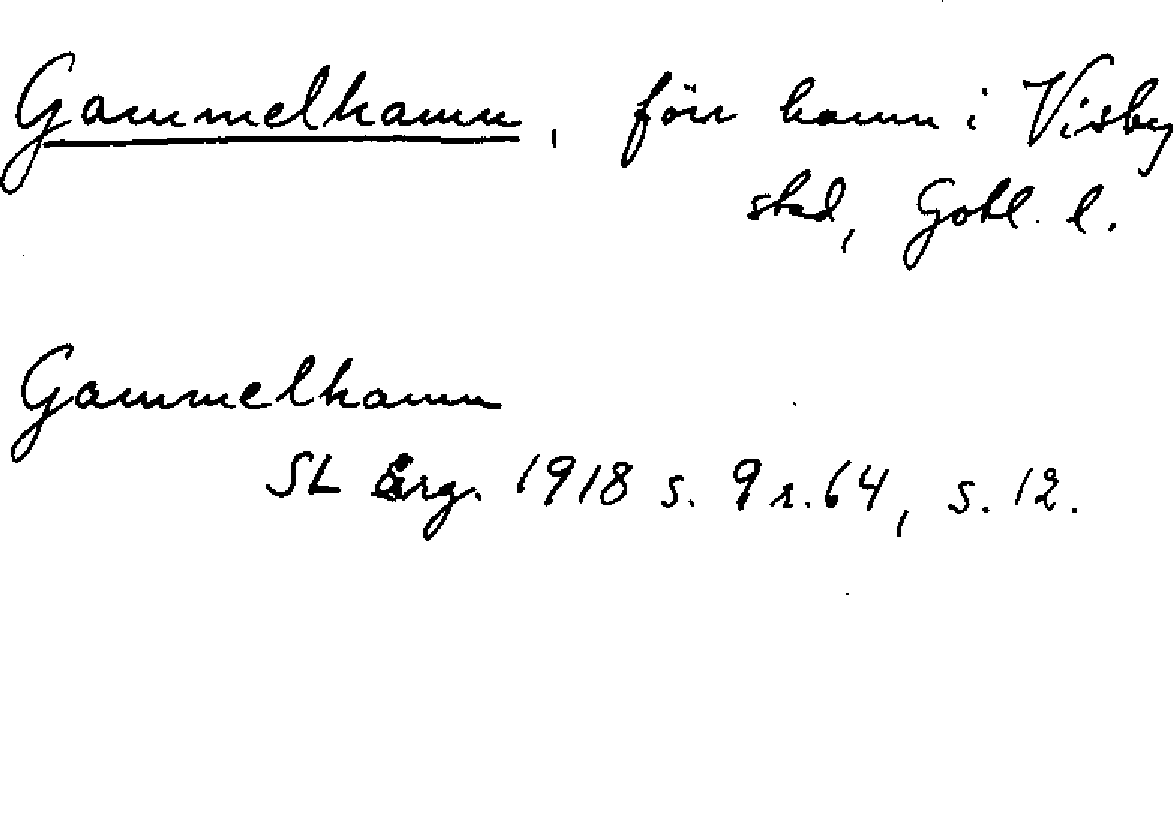 Gammelhamn, förr hamn i Visby
stad, Gotl. l.
Gammelhamn
SL Erg. 1918 s. 9 r. 64, s. 12.